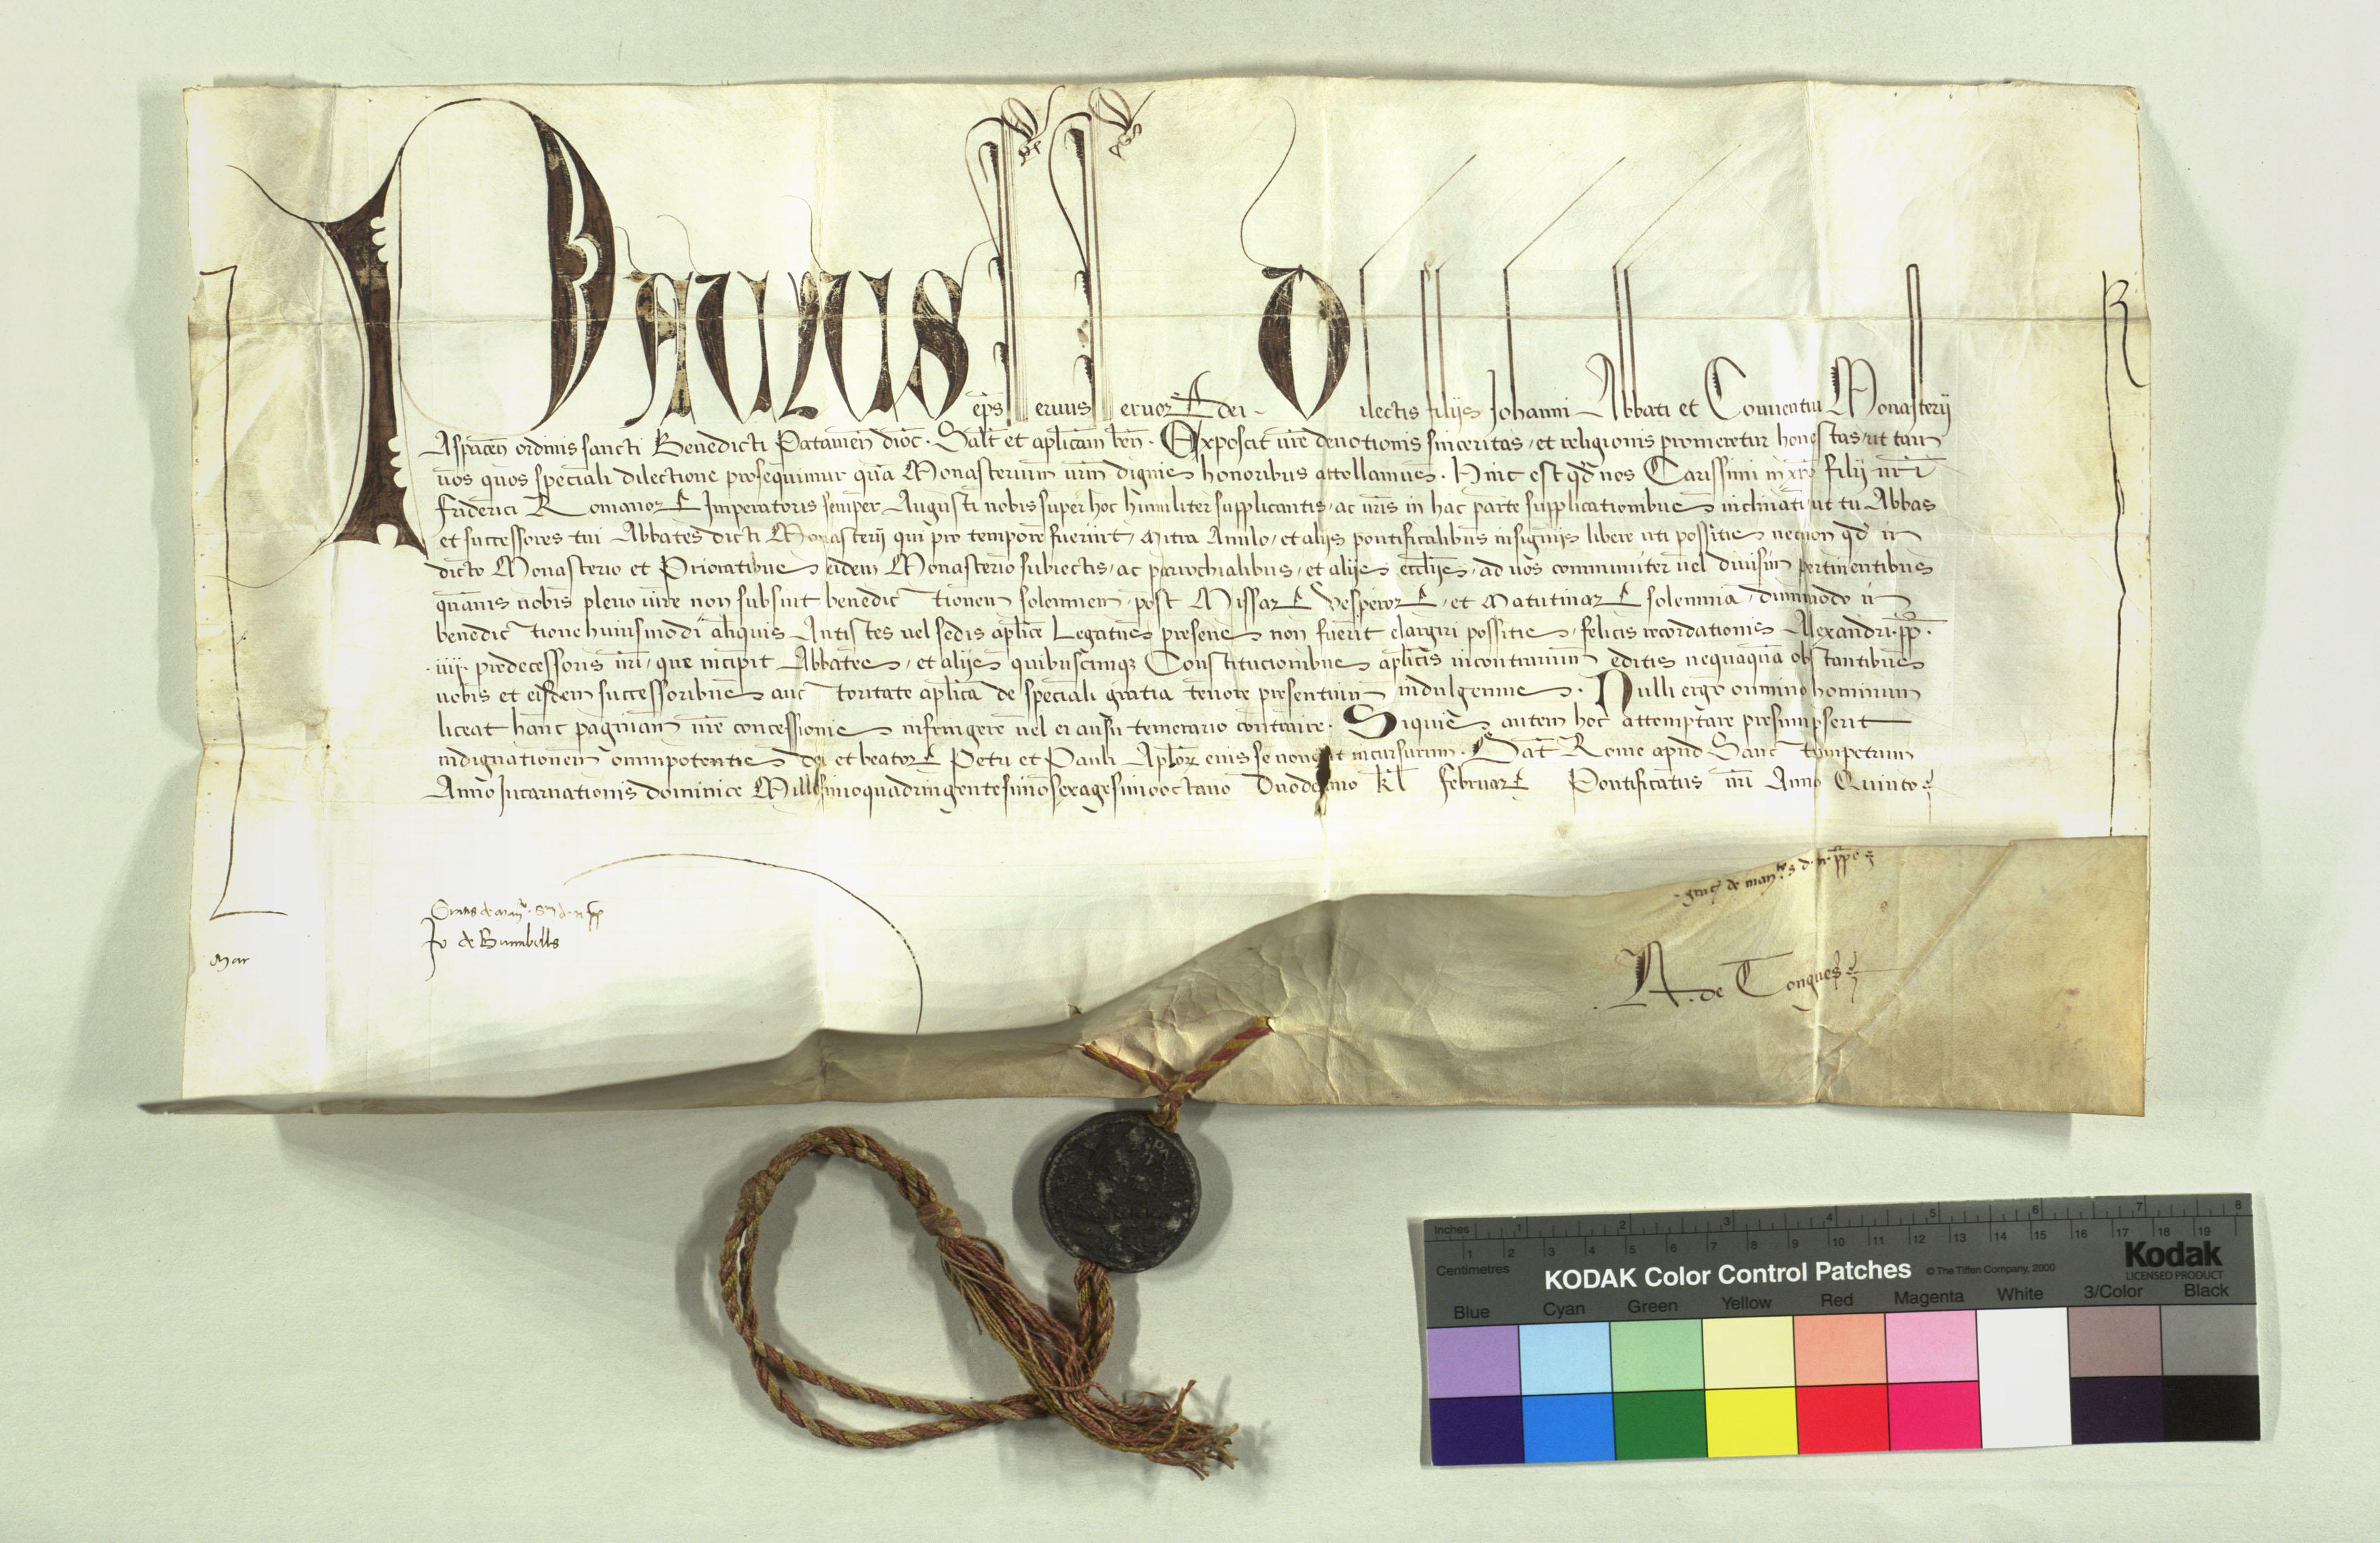 PAULUS eps Servus Servor dei Dilectis filijs Johanni Abbati et Conventui Monasterij
Aspacen ordinis sancti Benedicti Patavien dioc. Salt et aplicam ben. Exposcit vre devotionis sinceritas, et religionis promeretur honestas, ut tam
vos quos speciali dilectione prosequimur qua Monasterium vrm dignis honoribus attollamus. Hinc est qd nos Carissimi in xpo filij nri
Friderici Romanor Imperatoris semper Augusti nobis super hoc humiliter supplicantis, ac vris in hac parte supplicationibus inclinati, ut tu Abbas
et successores tui Abbates dicti Monasterij qui pro tempore fuerint, Mitra Anulo, et alijs pontificalibus insignijs libere uti possitis necnon qd in
dicto Monasterio et Prioratibus eidem Monasterio subiectis, ac parrochialibus, et alijs ecclijs, ad vos communiter vel divisim pertinentibus
quamvis vobis pleno iure non subsint benedictionem solemnem, post Missar Vesperor, et Matutinar solemnia, dummodo in
benedictione huiusmodi aliquis Antistes vel sedis aplice Legatus presens non fuerit elargiri possitis, felicis recordationis Alexandri pp.
.iiij. predecessoris nri, que incipit Abbates, et alijs quibuscumque Constitucionibus aplicis incontrarium editis nequaquam obstantibus
vobis et eisdem successoribus auctoritate aplica de speciali gratia tenore presentium indulgemus. Nulli ergo omnino hominum
liceat hanc paginam nre concessionis infringere vel ei ausu temerario contraire. Siquis autem hoc attemptare presumpserit
indignationem omnipotentis dei et beator Petri et Pauli Aplor eius se noverit incursurum. Dat Rome apud Sanctumpetrum
Anno Incarnationis dominice Millesimoquadringentesimosexagesimooctavo Duodecimo kl Februar Pontificatus nri Anno Quinto
L
R
Gratis de man
Jo de Bunnbells
Mar
gratis de man
A. de Tonques
Inches 1 2 3 4 5 6 7 8
1 2 3 4 5 6 7 8 9 10 11 12 13 14 15 16 17 18 19
Centimetres
KODAK Color Control Patches © The Tiffen Company, 2000
Kodak
LICENSED PRODUCT
Blue Cyan Green Yellow Red Magenta White 3/Color Black